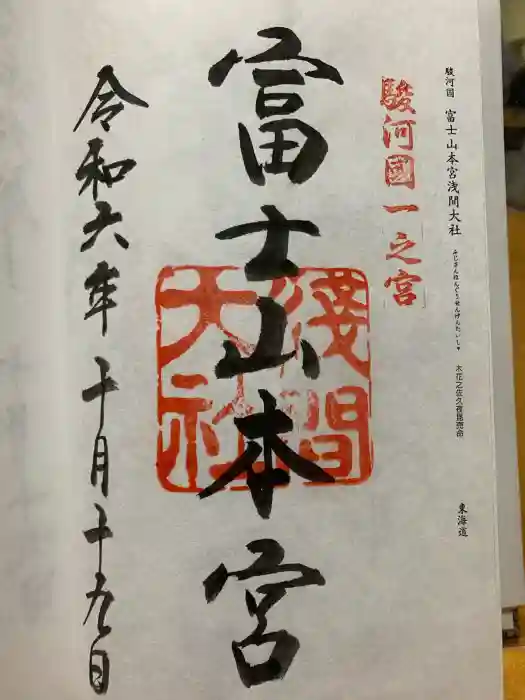 駿河國 富士山本宮浅間大社 ふじさんほんぐうせんげんたいしゃ 木花之佐久夜毘売命 東海道
駿河國一之宮
富士山本宮
淺間
大社
令和六年十月十九日